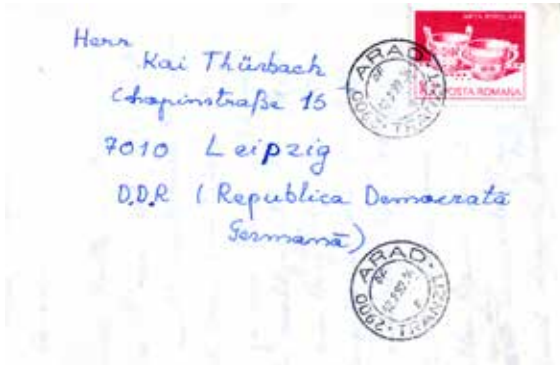 Herrn
Kai Thürbach
Chopinstraße 15
7010 Leipzig
D.D.R (Republica Democrată
Germană)
POSTA ROMANA
ARAD
2900 TRANZIT
ARAD
2900 TRANZIT